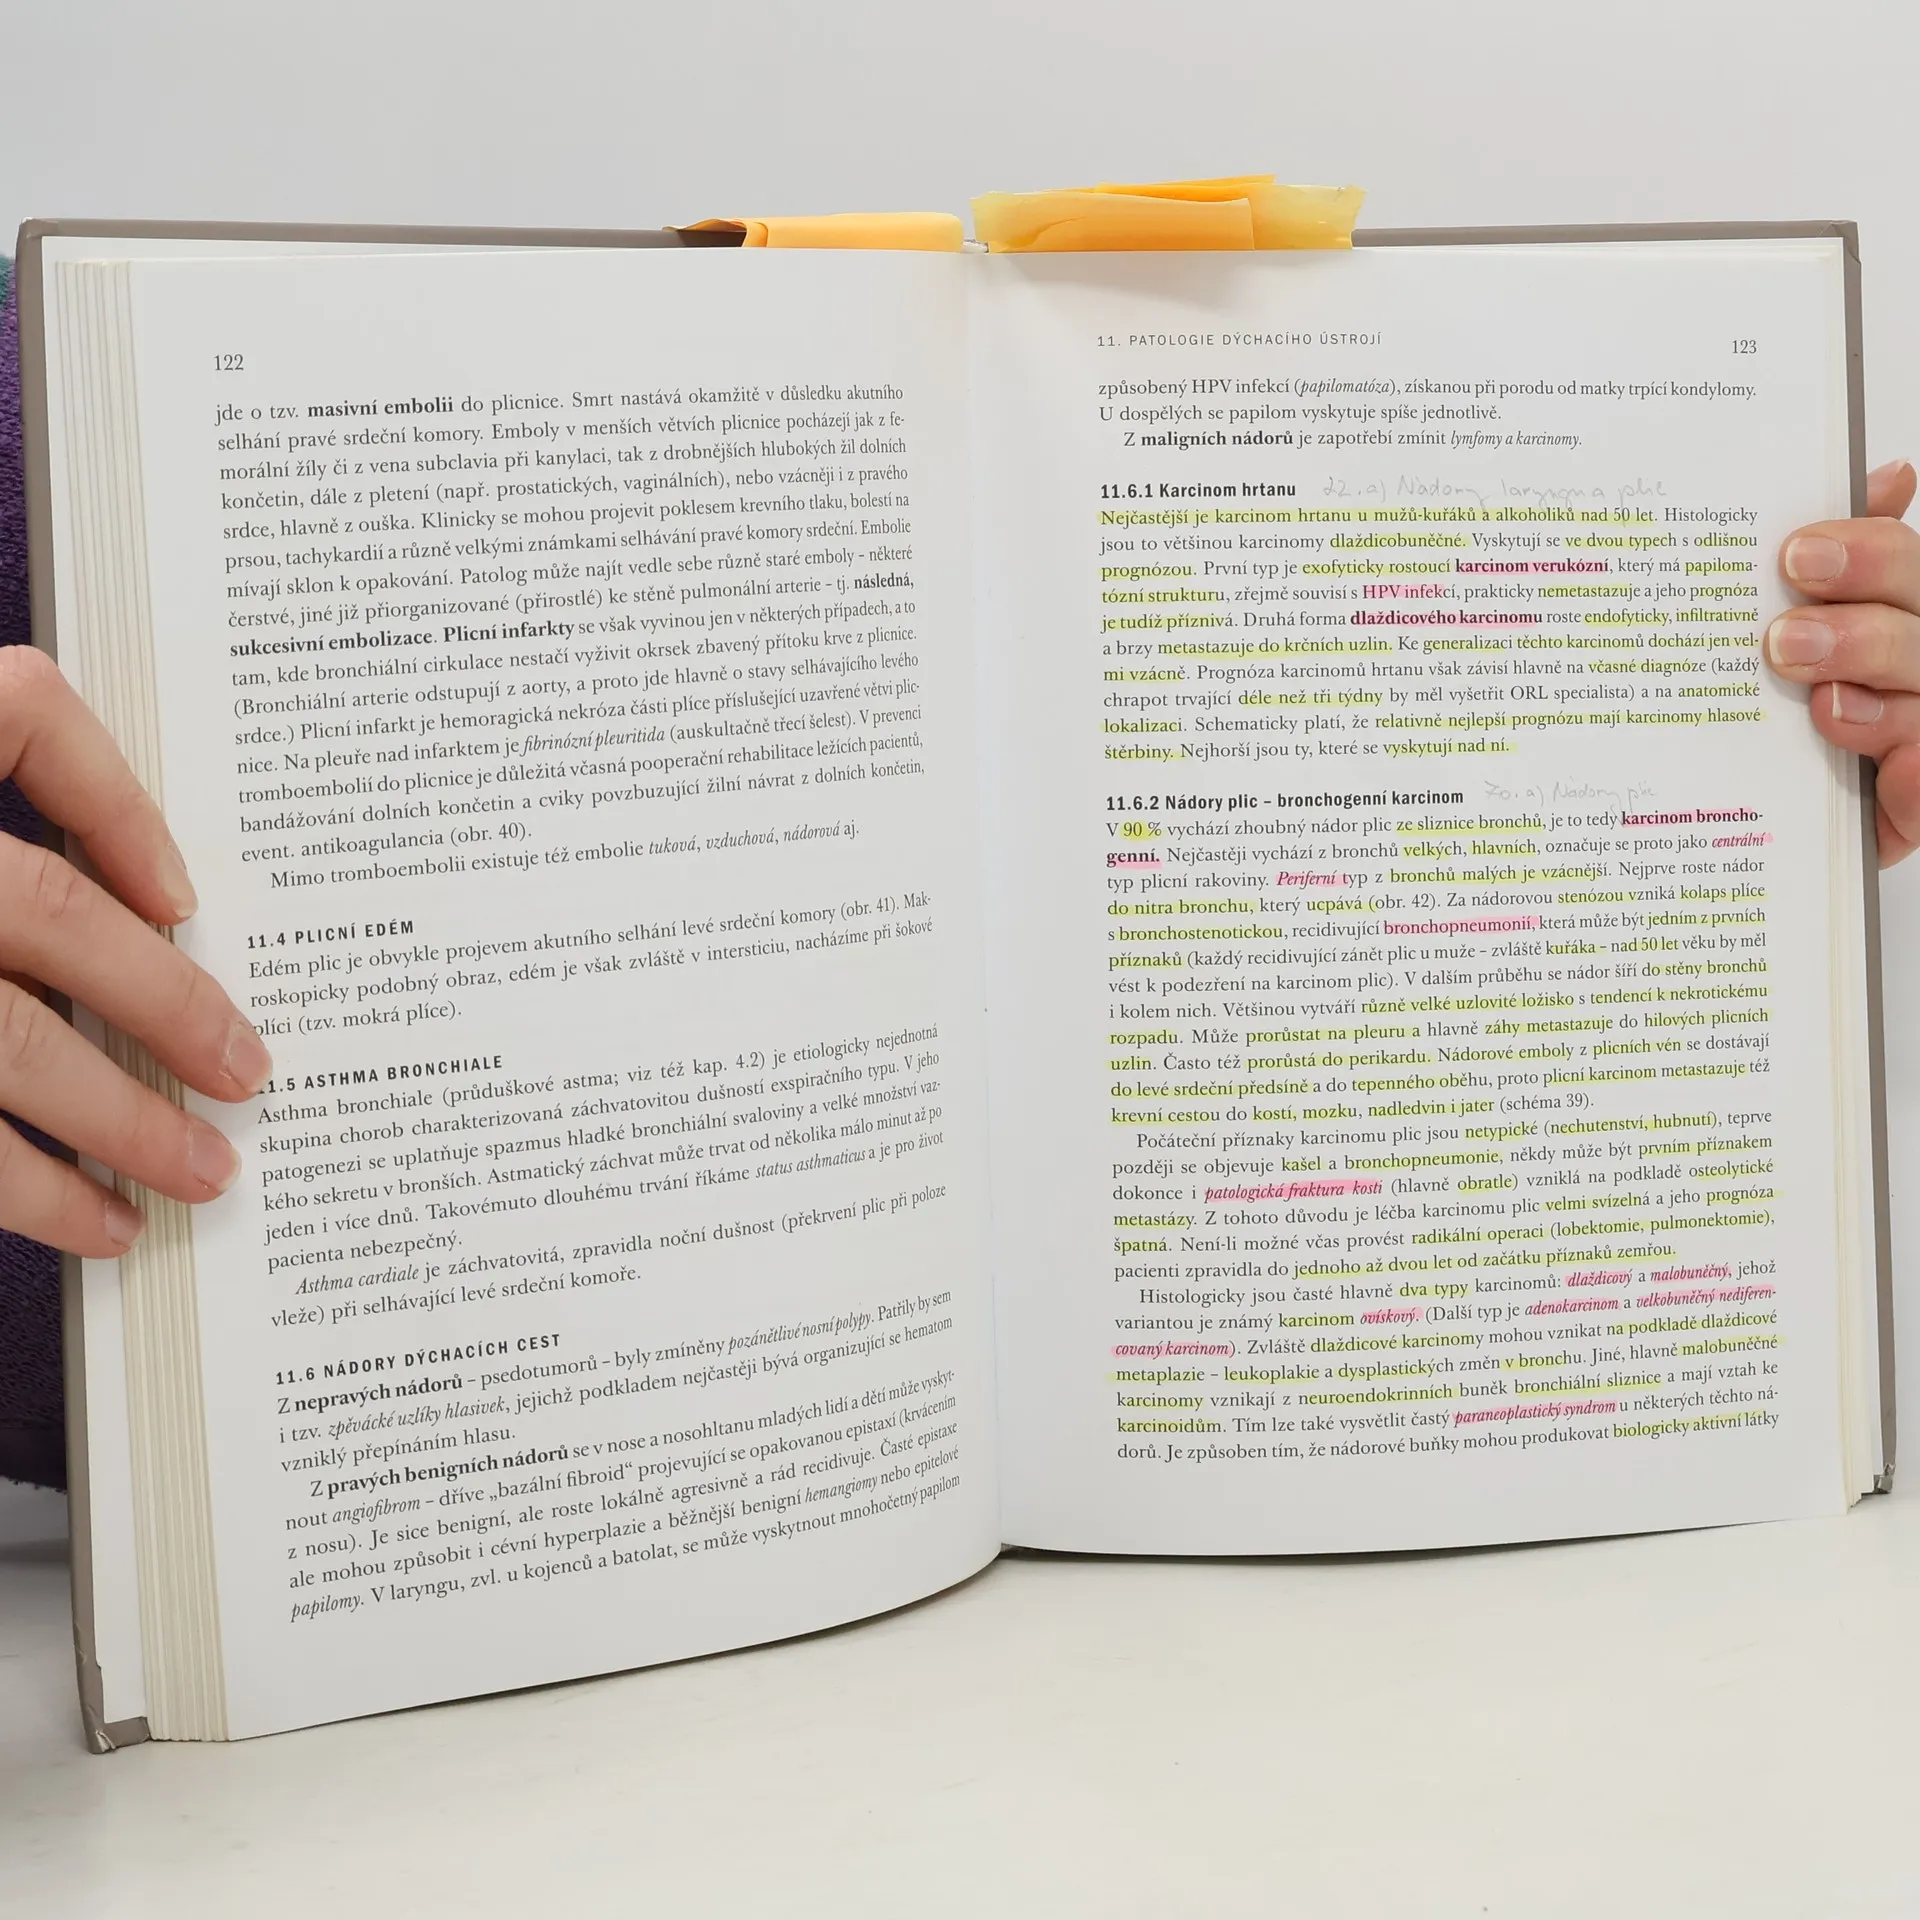 122
jde o tzv. masivní embolii do plicnice. Smrt nastává okamžitě v důsledku akutního
selhání pravé srdeční komory. Emboly v menších větvích plicnice pocházejí jak z fe-
morální žíly či z vena subclavia při kanylaci, tak z drobnějších hlubokých žil dolních
končetin, dále z pletení (např. prostatických, vaginálních), nebo vzácněji i z pravého
srdce, hlavně z ouška. Klinicky se mohou projevit poklesem krevního tlaku, bolestí na
prsou, tachykardií a různě velkými známkami selhávání pravé komory srdeční. Embolie
mívají sklon k opakování. Patolog může najít vedle sebe různě staré emboly – některé
čerstvé, jiné již přiorganizované (přirostlé) ke stěně pulmonální arterie – tj. následná,
sukcesivní embolizace. Plicní infarkty se však vyvinou jen v některých případech, a to
tam, kde bronchiální cirkulace nestačí vyživit okrsek zbavený přítoku krve z plicnice.
(Bronchiální arterie odstupují z aorty, a proto jde hlavně o stavy selhávajícího levého
srdce.) Plicní infarkt je hemoragická nekróza části plíce příslušející uzavřené větvi plic-
nice. Na pleuře nad infarktem je fibrinózní pleuritida (auskultačně třecí šelest). V prevenci
tromboembolií do plicnice je důležitá včasná pooperační rehabilitace ležících pacientů,
bandážování dolních končetin a cviky povzbuzující žilní návrat z dolních končetin,
event. antikoagulancia (obr. 40).
Mimo tromboembolii existuje též embolie tuková, vzduchová, nádorová aj.
11.4 PLICNÍ EDÉM
Edém plic je obvykle projevem akutního selhání levé srdeční komory (obr. 41). Mak-
roskopicky podobný obraz, edém je však zvláště v intersticiu, nacházíme při šokové
plíci (tzv. mokrá plíce).
11.5 ASTHMA BRONCHIALE
Asthma bronchiale (průduškové astma; viz též kap. 4.2) je etiologicky nejednotná
skupina chorob charakterizovaná záchvatovitou dušností exspiračního typu. V jeho
patogenezi se uplatňuje spazmus hladké bronchiální svaloviny a velké množství vaz-
kého sekretu v bronších. Astmatický záchvat může trvat od několika málo minut až po
jeden i více dnů. Takovémuto dlouhému trvání říkáme status asthmaticus a je pro život
pacienta nebezpečný.
Asthma cardiale je záchvatovitá, zpravidla noční dušnost (překrvení plic při poloze
vleže) při selhávající levé srdeční komoře.
11.6 NÁDORY DÝCHACÍCH CEST
Z nepravých nádorů – psedotumorů – byly zmíněny pozánětlivé nosní polypy. Patřily by sem
i tzv. zpěvácké uzlíky hlasivek, jejichž podkladem nejčastěji bývá organizující se hematom
vzniklý přepínáním hlasu.
Z pravých benigních nádorů se v nose a nosohltanu mladých lidí a dětí může vyskyt-
nout angiofibrom – dříve „bazální fibroid“ projevující se opakovanou epistaxí (krvácením
z nosu). Je sice benigní, ale roste lokálně agresivně a rád recidivuje. Časté epistaxe
ale mohou způsobit i cévní hyperplazie a běžnější benigní hemangiomy nebo epitelové
papilomy. V laryngu, zvl. u kojenců a batolat, se může vyskytnout mnohočetný papilom
11. PATOLOGIE DÝCHACÍHO ÚSTROJÍ
123
způsobený HPV infekcí (papilomatóza), získanou při porodu od matky trpící kondylomy.
U dospělých se papilom vyskytuje spíše jednotlivě.
Z maligních nádorů je zapotřebí zmínit lymfomy a karcinomy.
11.6.1 Karcinom hrtanu 22. a) Nádory laryngu a plic
Nejčastější je karcinom hrtanu u mužů-kuřáků a alkoholiků nad 50 let. Histologicky
jsou to většinou karcinomy dlaždicobuněčné. Vyskytují se ve dvou typech s odlišnou
prognózou. První typ je exofyticky rostoucí karcinom verukózní, který má papiloma-
tózní strukturu, zřejmě souvisí s HPV infekcí, prakticky nemetastazuje a jeho prognóza
je tudíž příznivá. Druhá forma dlaždicového karcinomu roste endofyticky, infiltrativně
a brzy metastazuje do krčních uzlin. Ke generalizaci těchto karcinomů dochází jen vel-
mi vzácně. Prognóza karcinomů hrtanu však závisí hlavně na včasné diagnóze (každý
chrapot trvající déle než tři týdny by měl vyšetřit ORL specialista) a na anatomické
lokalizaci. Schematicky platí, že relativně nejlepší prognózu mají karcinomy hlasové
štěrbiny. Nejhorší jsou ty, které se vyskytují nad ní.
11.6.2 Nádory plic – bronchogenní karcinom a) Nádory plic
V 90 % vychází zhoubný nádor plic ze sliznice bronchů, je to tedy karcinom broncho-
genní. Nejčastěji vychází z bronchů velkých, hlavních, označuje se proto jako centrální
typ plicní rakoviny. Periferní typ z bronchů malých je vzácnější. Nejprve roste nádor
do nitra bronchu, který ucpává (obr. 42). Za nádorovou stenózou vzniká kolaps plíce
s bronchostenotickou, recidivující bronchopneumonií, která může být jedním z prvních
příznaků (každý recidivující zánět plic u muže – zvláště kuřáka – nad 50 let věku by měl
vést k podezření na karcinom plic). V dalším průběhu se nádor šíří do stěny bronchů
i kolem nich. Většinou vytváří různě velké uzlovité ložisko s tendencí k nekrotickému
rozpadu. Může prorůstat na pleuru a hlavně záhy metastazuje do hilových plicních
uzlin. Často též prorůstá do perikardu. Nádorové emboly z plicních vén se dostávají
do levé srdeční předsíně a do tepenného oběhu, proto plicní karcinom metastazuje též
krevní cestou do kostí, mozku, nadledvin i jater (schéma 39).
Počáteční příznaky karcinomu plic jsou netypické (nechutenství, hubnutí), teprve
později se objevuje kašel a bronchopneumonie, někdy může být prvním příznakem
dokonce i patologická fraktura kosti (hlavně obratle) vzniklá na podkladě osteolytické
metastázy. Z tohoto důvodu je léčba karcinomu plic velmi svízelná a jeho prognóza
špatná. Není-li možné včas provést radikální operaci (lobektomie, pulmonektomie),
pacienti zpravidla do jednoho až dvou let od začátku příznaků zemřou.
Histologicky jsou časté hlavně dva typy karcinomů: dlaždicový a malobuněčný, jehož
variantou je známý karcinom ovískový. (Další typ je adenokarcinom a velkobuněčný nediferen-
covaný karcinom). Zvláště dlaždicové karcinomy mohou vznikat na podkladě dlaždicové
metaplazie – leukoplakie a dysplastických změn v bronchu. Jiné, hlavně malobuněčné
karcinomy vznikají z neuroendokrinních buněk bronchiální sliznice a mají vztah ke
karcinoidům. Tím lze také vysvětlit častý paraneoplastický syndrom u některých těchto ná-
dorů. Je způsoben tím, že nádorové buňky mohou produkovat biologicky aktivní látky